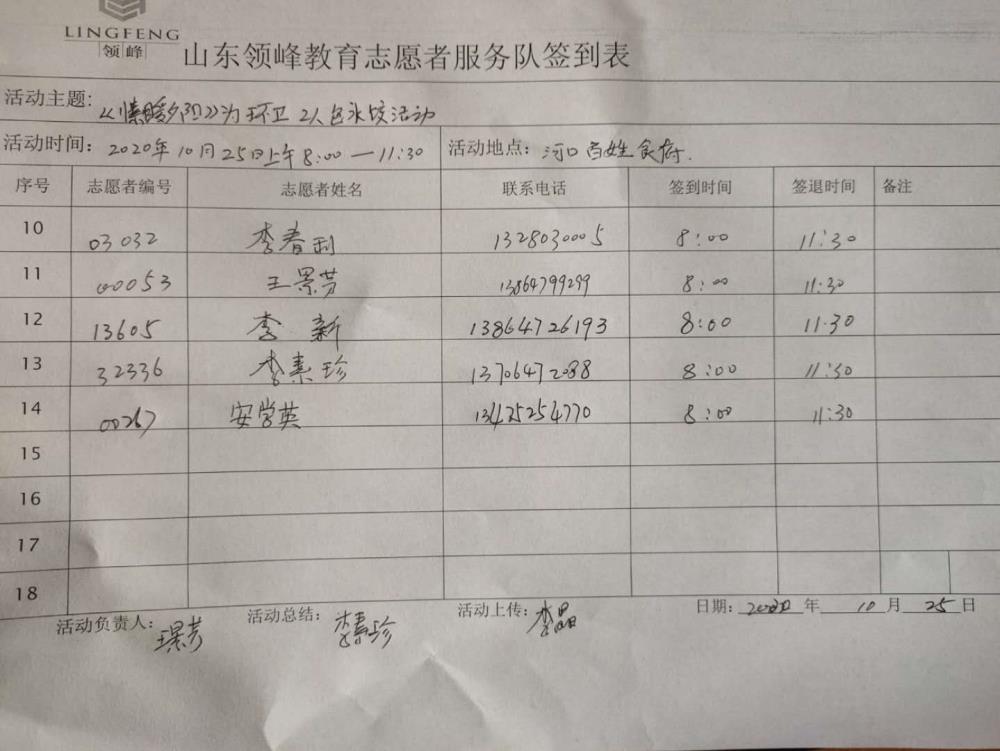 LINGFENG
领峰
山东领峰教育志愿者服务队签到表
活动主题: 《情暖夕阳》为环卫工人包水饺活动
活动时间: 2020年10月25日上午8:00—11:30 活动地点: 河口百姓食府.
序号 志愿者编号 志愿者姓名 联系电话 签到时间 签退时间 备注
10 03032 李春利 13280300005 8:00 11:30
11 00053 王景芳 13864799299 8:00 11:30
12 13605 李新 13864726193 8:00 11:30
13 32336 李素珍 13706472088 8:00 11:30
14 00267 安学英 13425254770 8:00 11:30
15
16
17
18
活动负责人: 王景芳 活动总结: 李素珍 活动上传: 李晶 日期: 2020年10月25日